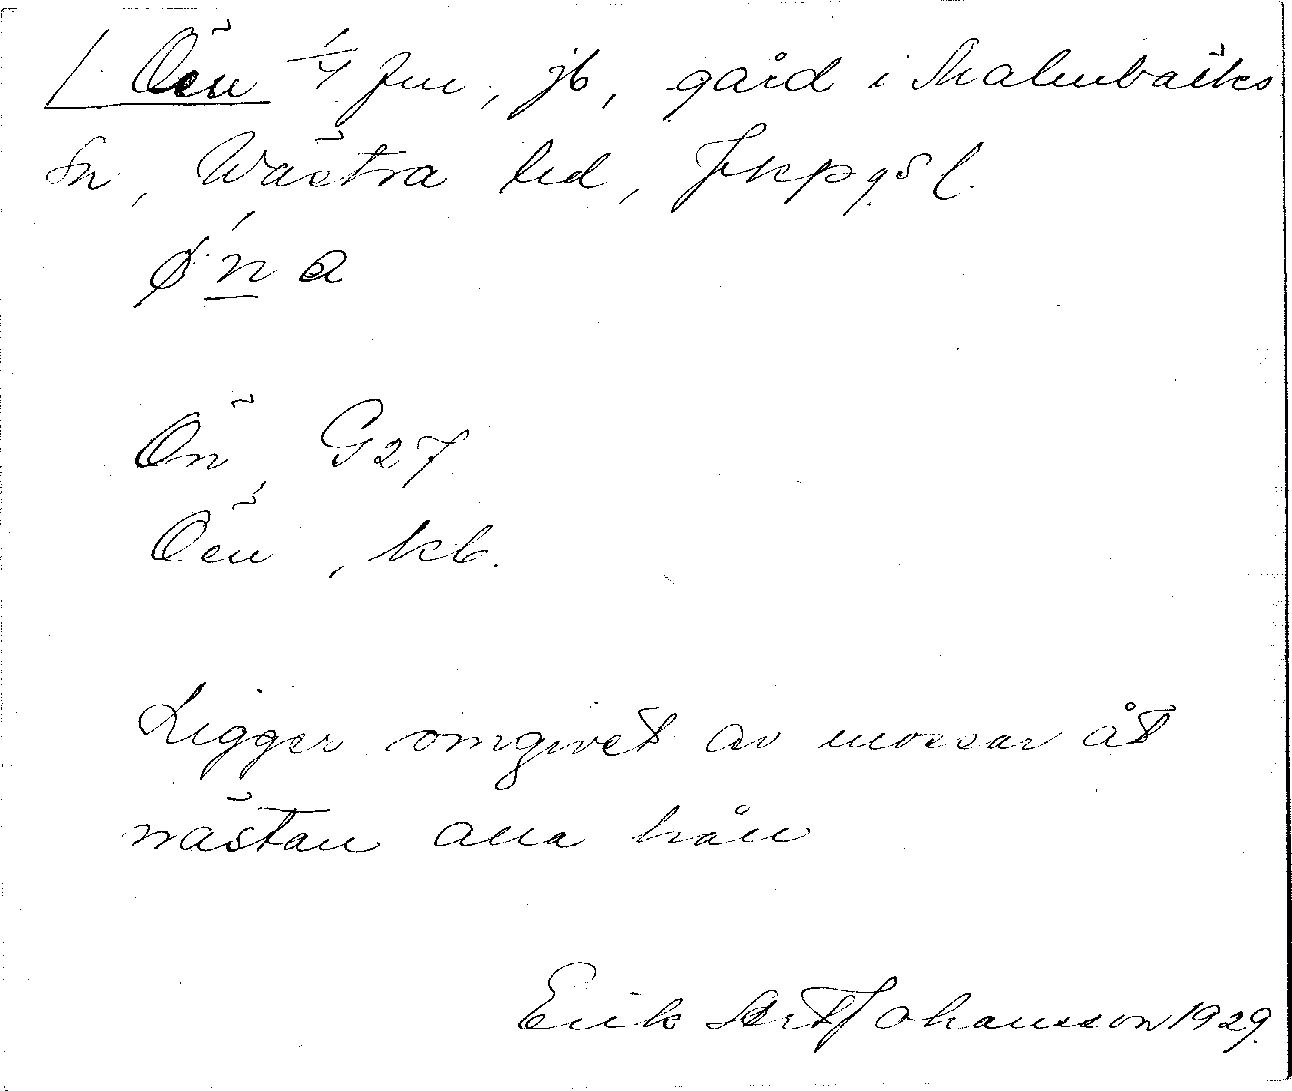 Öen 1/4 fm, jb, gård i Malmbäcks
Sn, Wästra hd, Jkpgs l.
ǿn a
Ön, G27
Öen, kb.
Ligger omgivet av mossar åt
nästan alla håll
Erik Johansson 1929.